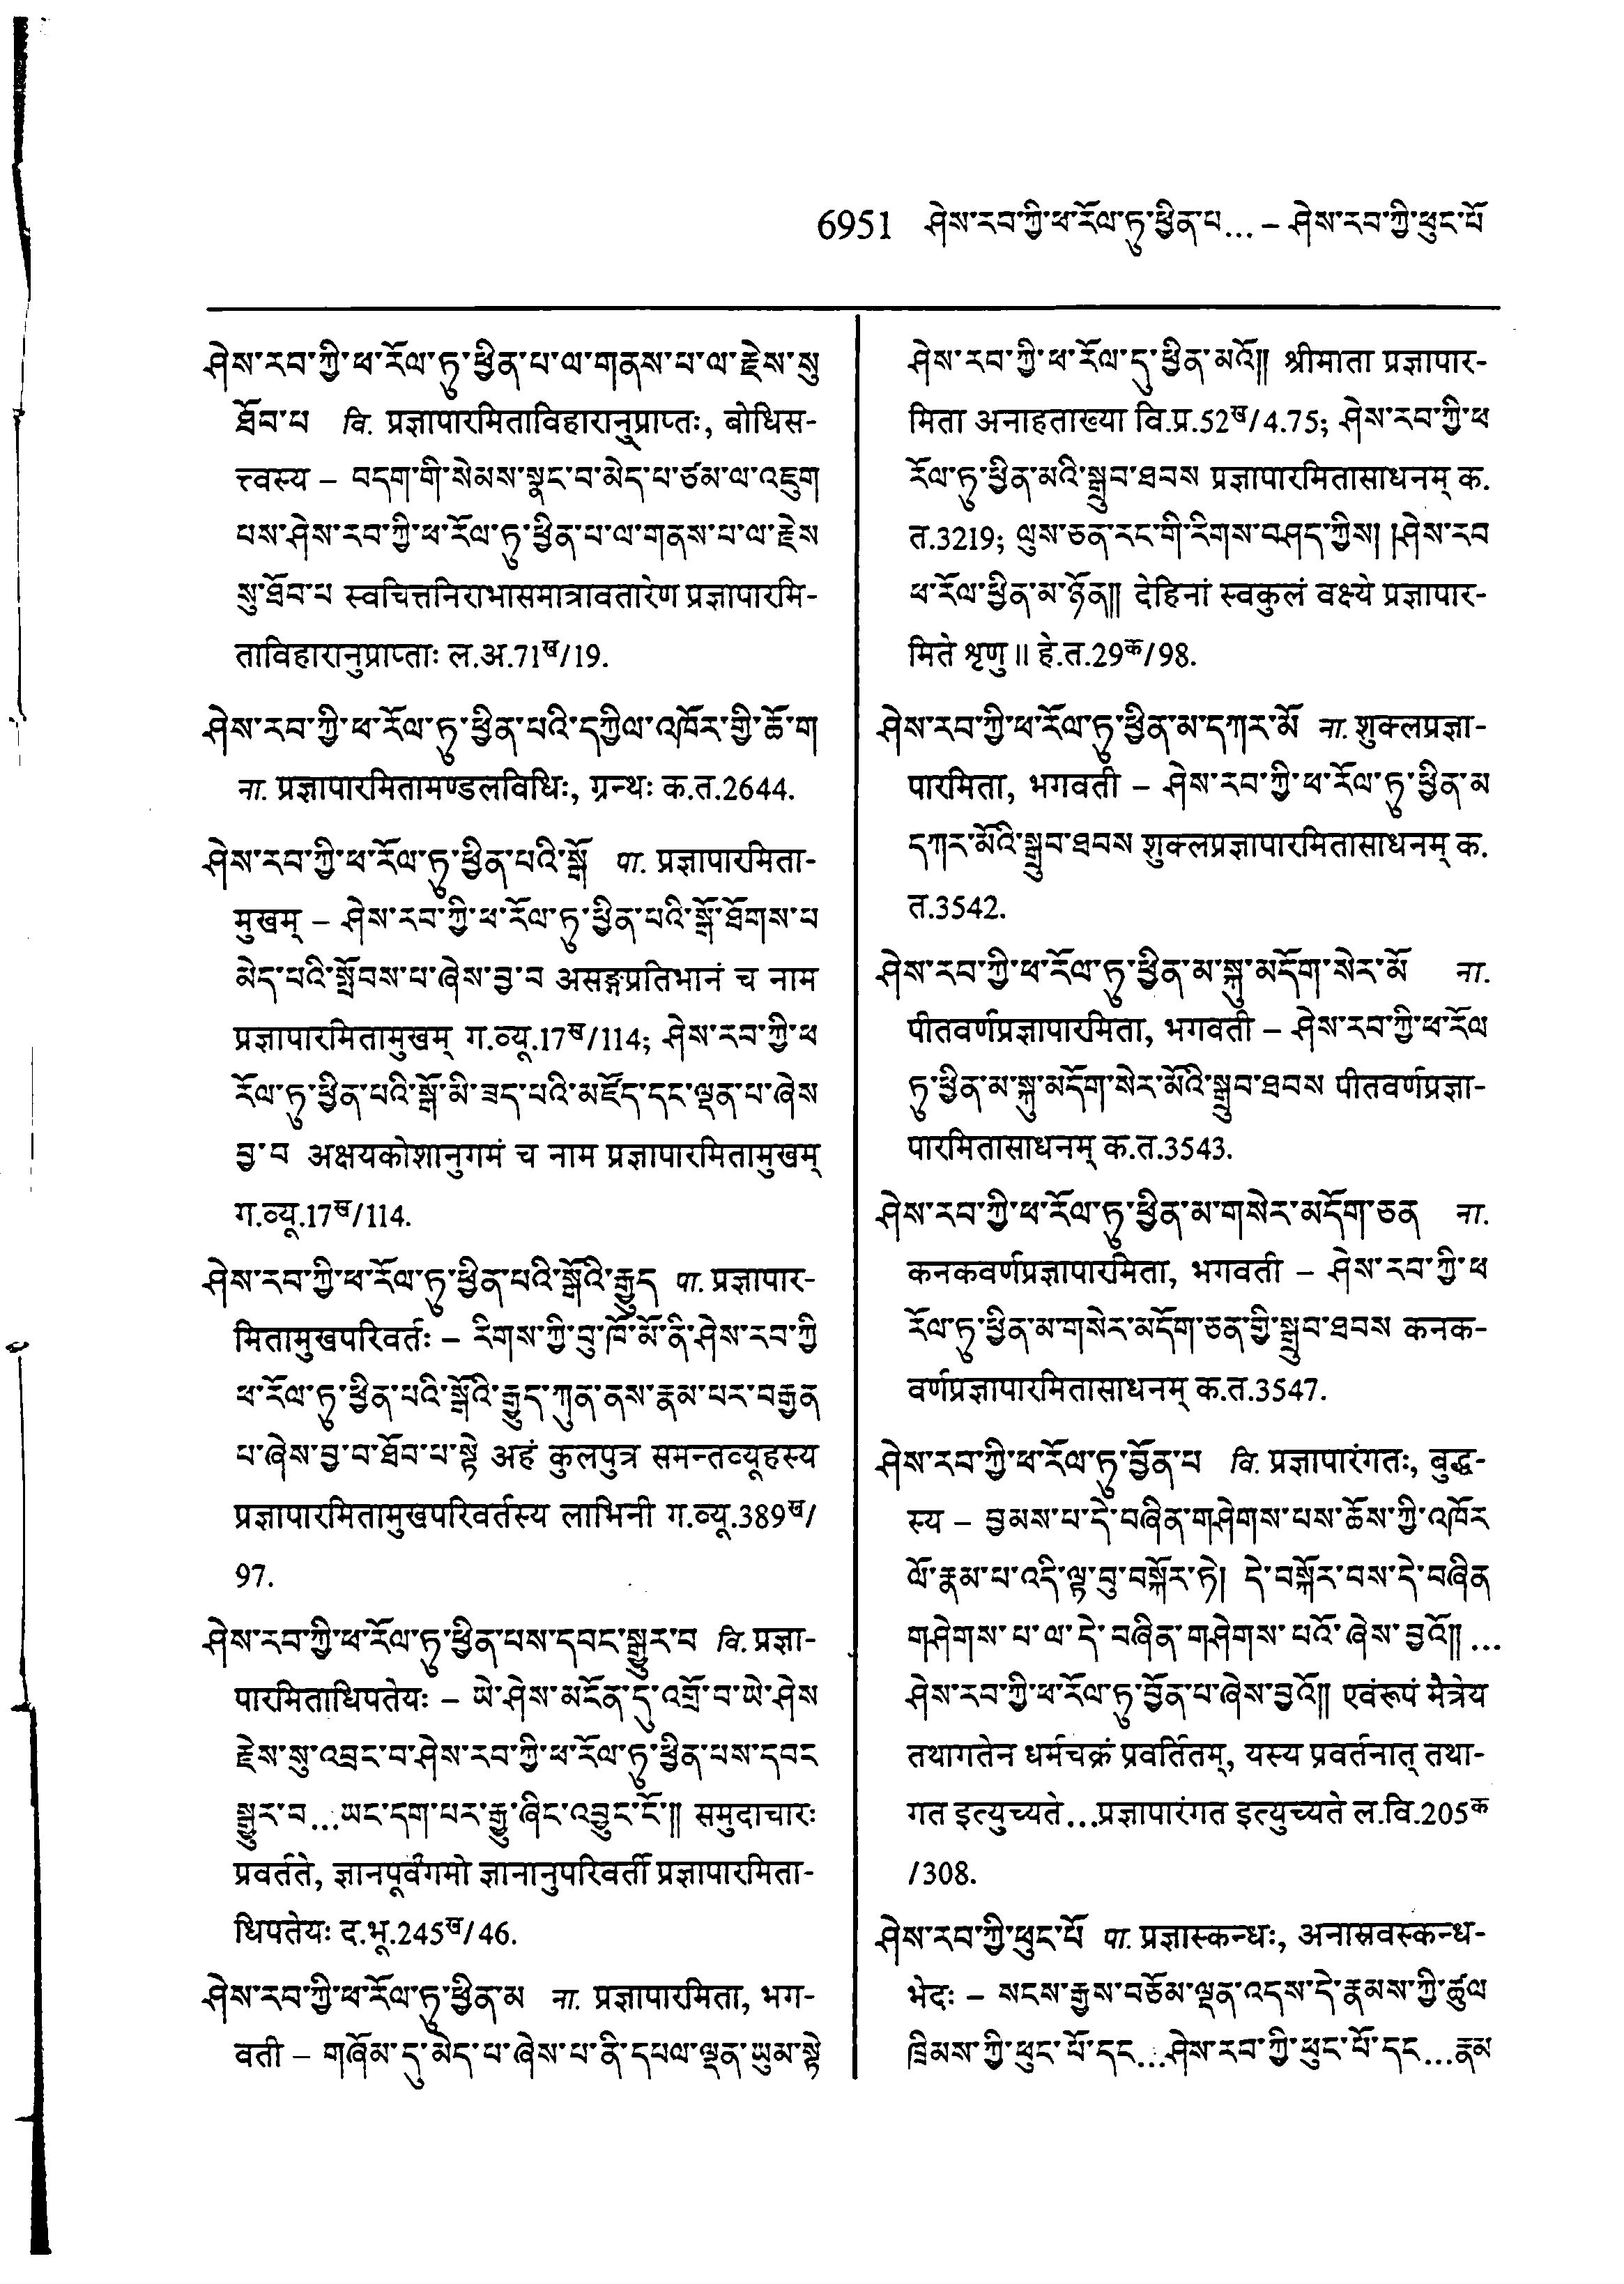 6951 ཤེས་རབ་ཀྱི་ཕ་རོལ་ཏུ་ཕྱིན་པ... – ཤེས་རབ་ཀྱི་ཕུང་པོ
ཤེས་རབ་ཀྱི་ཕ་རོལ་ཏུ་ཕྱིན་པ་ལ་གནས་པ་ལ་རྗེས་སུ
ཐོབ་པ वि. प्रज्ञापारमिताविहारानुप्राप्तः, बोधिस-
त्त्वस्य – བདག་གི་སེམས་སྣང་བ་མེད་པ་ཙམ་ལ་འཇུག
པས་ཤེས་རབ་ཀྱི་ཕ་རོལ་ཏུ་ཕྱིན་པ་ལ་གནས་པ་ལ་རྗེས
སུ་ཐོབ་པ स्वचित्तनिराभासमात्रावतारेण प्रज्ञापारमि-
ताविहारानुप्राप्ताः ल.अ.71ख/19.
ཤེས་རབ་ཀྱི་ཕ་རོལ་ཏུ་ཕྱིན་པའི་དཀྱིལ་འཁོར་གྱི་ཆོ་ག
ना. प्रज्ञापारमितामण्डलविधिः, ग्रन्थः क.त.2644.
ཤེས་རབ་ཀྱི་ཕ་རོལ་ཏུ་ཕྱིན་པའི་སྒོ पा. प्रज्ञापारमिता-
मुखम् – ཤེས་རབ་ཀྱི་ཕ་རོལ་ཏུ་ཕྱིན་པའི་སྒོ་ཐོགས་པ
མེད་པའི་སྤོབས་པ་ཞེས་བྱ་བ असङ्गप्रतिभानं च नाम
प्रज्ञापारमितामुखम् ग.व्यू.17ख/114; ཤེས་རབ་ཀྱི་ཕ
རོལ་ཏུ་ཕྱིན་པའི་སྒོ་མི་ཟད་པའི་མཛོད་དང་ལྡན་པ་ཞེས
བྱ་བ अक्षयकोशानुगमं च नाम प्रज्ञापारमितामुखम्
ग.व्यू.17ख/114.
ཤེས་རབ་ཀྱི་ཕ་རོལ་ཏུ་ཕྱིན་པའི་སྒོའི་རྒྱུད पा. प्रज्ञापार-
मितामुखपरिवर्तः – རིགས་ཀྱི་བུ་ཁོ་མོ་ནི་ཤེས་རབ་ཀྱི
ཕ་རོལ་ཏུ་ཕྱིན་པའི་སྒོའི་རྒྱུད་ཀུན་ནས་རྣམ་པར་བརྒྱན
པ་ཞེས་བྱ་བ་ཐོབ་པ་སྟེ अहं कुलपुत्र समन्तव्यूहस्य
प्रज्ञापारमितामुखपरिवर्तस्य लाभिनी ग.व्यू.389ख/
97.
ཤེས་རབ་ཀྱི་ཕ་རོལ་ཏུ་ཕྱིན་པས་དབང་སྒྱུར་བ वि. प्रज्ञा-
पारमिताधिपतेयः – ཡེ་ཤེས་མངོན་དུ་འགྲོ་བ་ཡེ་ཤེས
རྗེས་སུ་འབྲང་བ་ཤེས་རབ་ཀྱི་ཕ་རོལ་ཏུ་ཕྱིན་པས་དབང
སྒྱུར་བ...ཡང་དག་པར་རྒྱུ་ཞིང་འབྱུང་ངོ༌།། समुदाचारः
प्रवर्तते, ज्ञानपूर्वंगमो ज्ञानानुपरिवर्ती प्रज्ञापारमिता-
धिपतेयः द.भू.245ख/46.
ཤེས་རབ་ཀྱི་ཕ་རོལ་ཏུ་ཕྱིན་མ ना. प्रज्ञापारमिता, भग-
वती – གཞོམ་དུ་མེད་པ་ཞེས་པ་ནི་དཔལ་ལྡན་ཡུམ་སྟེ
ཤེས་རབ་ཀྱི་ཕ་རོལ་དུ་ཕྱིན་མའོ།། श्रीमाता प्रज्ञापार-
मिता अनाहताख्या वि.प्र.52ख/4.75; ཤེས་རབ་ཀྱི་ཕ
རོལ་ཏུ་ཕྱིན་མའི་སྒྲུབ་ཐབས प्रज्ञापारमितासाधनम् क.
त.3219; ལུས་ཅན་རང་གི་རིགས་བཤད་ཀྱིས། །ཤེས་རབ
ཕ་རོལ་ཕྱིན་མ་ཉོན།། देहिनां स्वकुलं वक्ष्ये प्रज्ञापार-
मिते शृणु ॥ हे.त.29क/98.
ཤེས་རབ་ཀྱི་ཕ་རོལ་ཏུ་ཕྱིན་མ་དཀར་མོ ना. शुक्लप्रज्ञा-
पारमिता, भगवती – ཤེས་རབ་ཀྱི་ཕ་རོལ་ཏུ་ཕྱིན་མ
དཀར་མོའི་སྒྲུབ་ཐབས शुक्लप्रज्ञापारमितासाधनम् क.
त.3542.
ཤེས་རབ་ཀྱི་ཕ་རོལ་ཏུ་ཕྱིན་མ་སྐུ་མདོག་སེར་མོ ना.
पीतवर्णप्रज्ञापारमिता, भगवती – ཤེས་རབ་ཀྱི་ཕ་རོལ
ཏུ་ཕྱིན་མ་སྐུ་མདོག་སེར་མོའི་སྒྲུབ་ཐབས पीतवर्णप्रज्ञा-
पारमितासाधनम् क.त.3543.
ཤེས་རབ་ཀྱི་ཕ་རོལ་ཏུ་ཕྱིན་མ་གསེར་མདོག་ཅན ना.
कनकवर्णप्रज्ञापारमिता, भगवती – ཤེས་རབ་ཀྱི་ཕ
རོལ་ཏུ་ཕྱིན་མ་གསེར་མདོག་ཅན་གྱི་སྒྲུབ་ཐབས कनक-
वर्णप्रज्ञापारमितासाधनम् क.त.3547.
ཤེས་རབ་ཀྱི་ཕ་རོལ་ཏུ་བྱོན་པ वि. प्रज्ञापारंगतः, बुद्ध-
स्य – བྱམས་པ་དེ་བཞིན་གཤེགས་པས་ཆོས་ཀྱི་འཁོར
ལོ་རྣམ་པ་འདི་ལྟ་བུ་བསྐོར་ཏེ། དེ་བསྐོར་བས་དེ་བཞིན
གཤེགས་པ་ལ་དེ་བཞིན་གཤེགས་པའོ་ཞེས་བྱའོ།། ...
ཤེས་རབ་ཀྱི་ཕ་རོལ་ཏུ་བྱོན་པ་ཞེས་བྱའོ།། एवंरूपं मैत्रेय
तथागतेन धर्मचक्रं प्रवर्तितम्, यस्य प्रवर्तनात् तथा-
गत इत्युच्यते...प्रज्ञापारंगत इत्युच्यते ल.वि.205क
/308.
ཤེས་རབ་ཀྱི་ཕུང་པོ पा. प्रज्ञास्कन्धः, अनास्रवस्कन्ध-
भेदः – སངས་རྒྱས་བཅོམ་ལྡན་འདས་དེ་རྣམས་ཀྱི་ཚུལ
ཁྲིམས་ཀྱི་ཕུང་པོ་དང...ཤེས་རབ་ཀྱི་ཕུང་པོ་དང...རྣམ